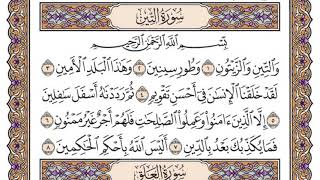 سُورَةُ التِّينِ
بِسْمِ اللَّهِ الرَّحْمَٰنِ الرَّحِيمِ
وَالتِّينِ وَالزَّيْتُونِ ١ وَطُورِ سِينِينَ ٢ وَهَٰذَا الْبَلَدِ الْأَمِينِ ٣
لَقَدْ خَلَقْنَا الْإِنسَٰنَ فِي أَحْسَنِ تَقْوِيمٍ ٤ ثُمَّ رَدَدْنَٰهُ أَسْفَلَ سَٰفِلِينَ ٥
إِلَّا الَّذِينَ ءَامَنُوا وَعَمِلُوا الصَّٰلِحَٰتِ فَلَهُمْ أَجْرٌ غَيْرُ مَمْنُونٍ ٦
فَمَا يُكَذِّبُكَ بَعْدُ بِالدِّينِ ٧ أَلَيْسَ اللَّهُ بِأَحْكَمِ الْحَٰكِمِينَ ٨
سُورَةُ الْعَلَقِ